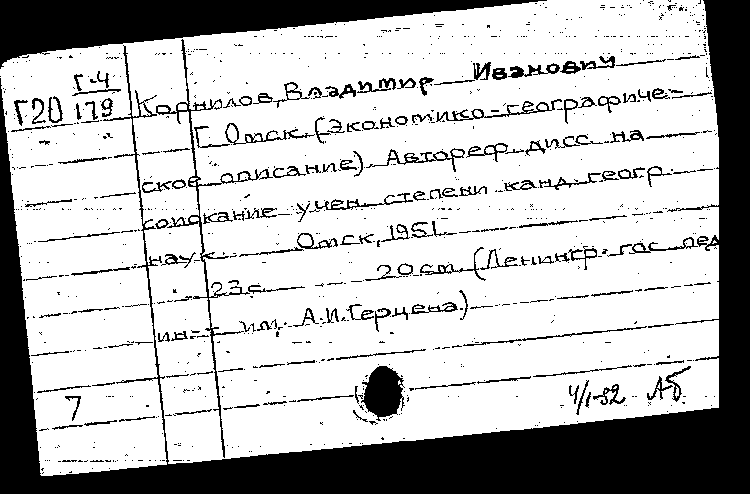 Г-4
Г20 179
Корнилов, Владимир Иванович
Г. Омск. (Экономико-географиче-
ское описание). Автореф. дисс. на
соискание учен. степени канд. геогр.
наук. Омск, 1951.
23 с. 20 см. (Ленингр. гос. пед
ин-т им. А.И. Герцена.)
7
4/I-52 Аб